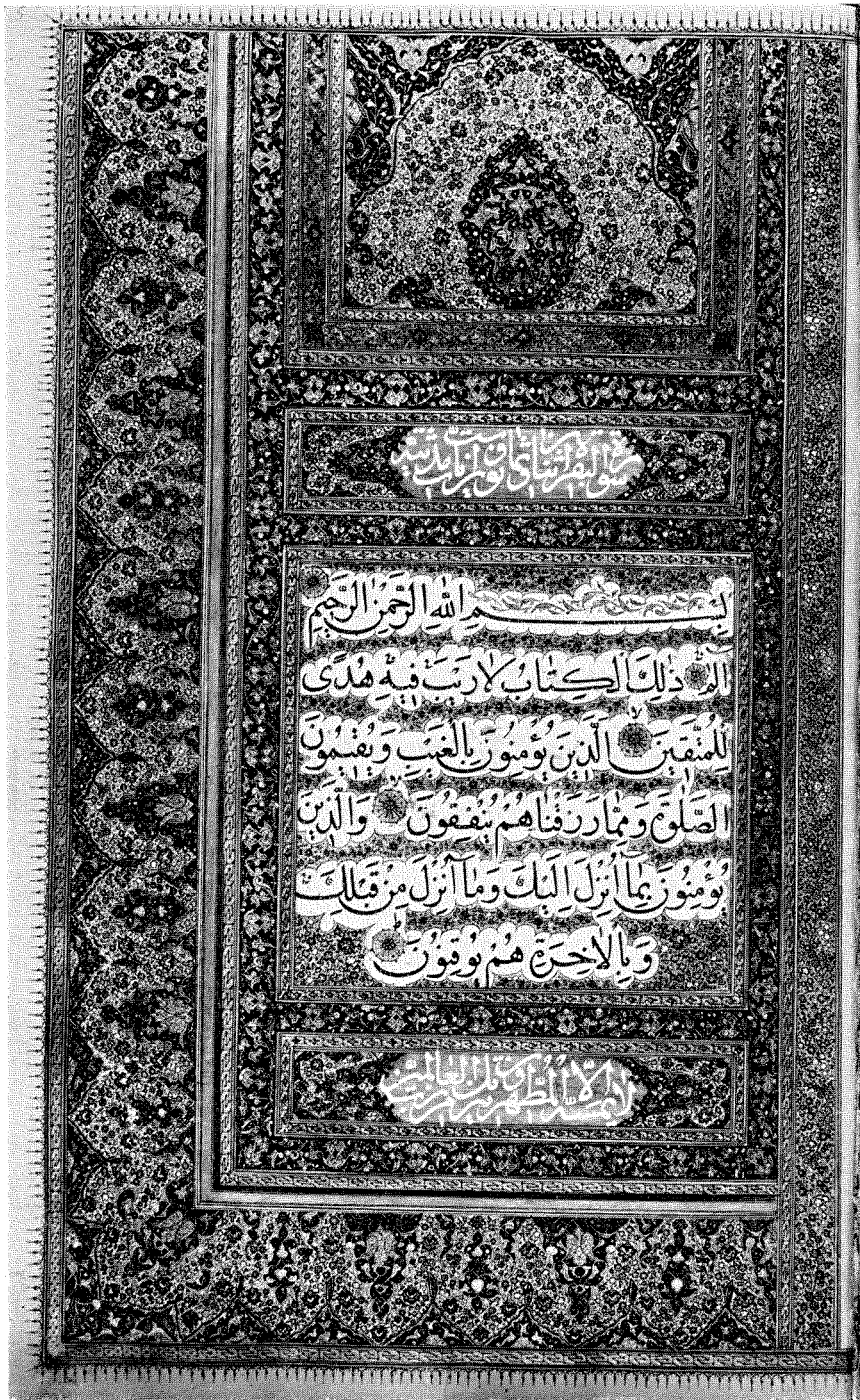 سورة البقرة مائتان
بِسْمِ اللهِ الرَّحْمٰنِ الرَّحِيمِ
الٓمٓ ذٰلِكَ الْكِتَابُ لَا رَيْبَ فِيهِ هُدًى
لِلْمُتَّقِينَ الَّذِينَ يُؤْمِنُونَ بِالْغَيْبِ وَيُقِيمُونَ
الصَّلٰوةَ وَمِمَّا رَزَقْنَاهُمْ يُنْفِقُونَ وَالَّذِينَ
يُؤْمِنُونَ بِمَآ اُنْزِلَ اِلَيْكَ وَمَآ اُنْزِلَ مِنْ قَبْلِكَ
وَبِالْاٰخِرَةِ هُمْ يُوقِنُونَ
لا يمسه الا المطهرون تنزيل من رب العالمين